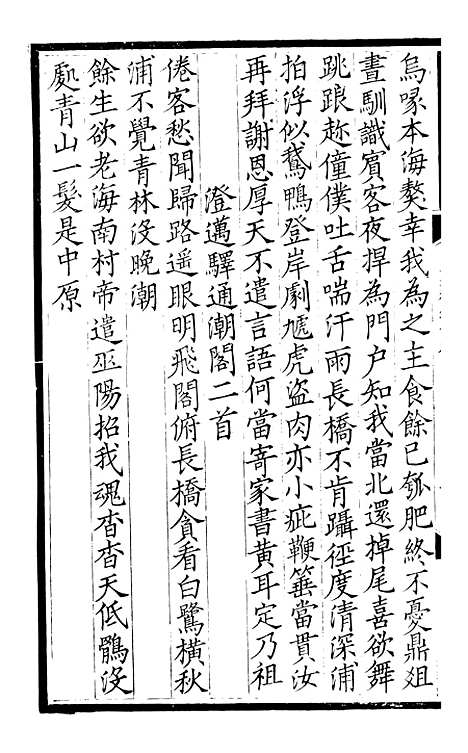 烏喙本海獒幸我為之主食餘已瓠肥終不憂鼎俎
晝馴識賓客夜捍為門户知我當北還掉尾喜欲舞
跳踉趂僮僕吐舌喘汗雨長橋不肯躡徑度清深浦
拍浮似鵞鴨登岸劇虓虎盜肉亦小疵鞭箠當貫汝
再拜謝恩厚天不遣言語何當寄家書黄耳定乃祖
澄邁驛通潮閣二首
倦客愁聞歸路遥眼明飛閣俯長橋貪看白鷺橫秋
浦不覺青林沒晚潮
餘生欲老海南村帝遣巫陽招我魂杳杳天低鶻沒
處青山一髮是中原